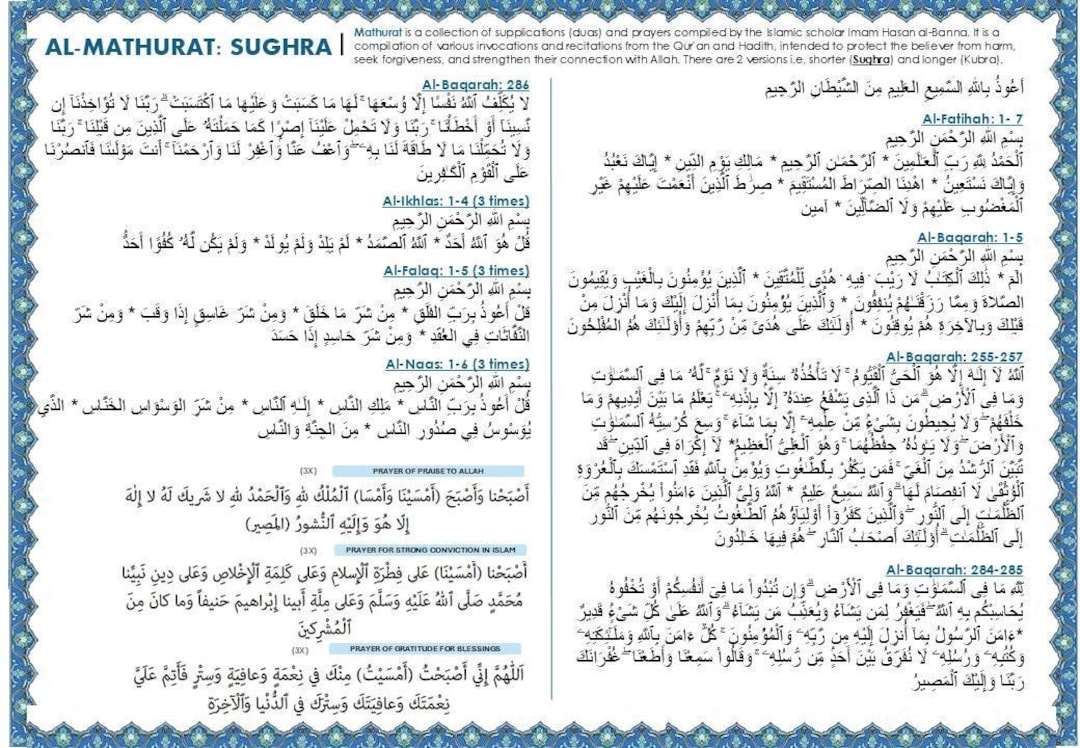 AL-MATHURAT: SUGHRA
Mathurat is a collection of supplications (duas) and prayers compiled by the Islamic scholar Imam Hasan al-Banna. It is a
compilation of various invocations and recitations from the Qur'an and Hadith, intended to protect the believer from harm,
seek forgiveness, and strengthen their connection with Allah. There are 2 versions i.e, shorter (Sughra) and longer (Kubra).
أَعُوذُ بِاللهِ السَّمِيعِ العَلِيمِ مِنَ الشَّيْطَانِ الرَّجِيمِ
Al-Fatihah: 1- 7
بِسْمِ اللهِ الرَّحْمَنِ الرَّحِيمِ
ٱلْحَمْدُ لِلَّهِ رَبِّ ٱلْعَـٰلَمِينَ * ٱلرَّحْمَـٰنِ ٱلرَّحِيمِ * مَالِكِ يَوْمِ الدِّينِ * إِيَّاكَ نَعْبُدُ
وَإِيَّاكَ نَسْتَعِينُ * اهْدِنَا الصِّرَاطَ المُسْتَقِيمَ * صِرَٰطَ ٱلَّذِينَ أَنْعَمْتَ عَلَيْهِمْ غَيْرِ
ٱلْمَغْضُوبِ عَلَيْهِمْ وَلَا ٱلضَّآلِّينَ * آمين
Al-Baqarah: 1-5
بِسْمِ اللهِ الرَّحْمَنِ الرَّحِيمِ
الٓمٓ * ذَٰلِكَ ٱلْكِتَـٰبُ لَا رَيْبَ ۛ فِيهِ ۛ هُدًى لِّلْمُتَّقِينَ * ٱلَّذِينَ يُؤْمِنُونَ بِالْغَيْبِ وَيُقِيمُونَ
الصَّلَاةَ وَمِمَّا رَزَقْنَـٰهُمْ يُنفِقُونَ * وَٱلَّذِينَ يُؤْمِنُونَ بِمَا أُنْزِلَ إِلَيْكَ وَمَا أُنْزِلَ مِنْ
قَبْلِكَ وَبِالْآخِرَةِ هُمْ يُوقِنُونَ * أُولَـٰئِكَ عَلَى هُدًى مِّنْ رَّبِّهِمْ وَأُوْلَـٰئِكَ هُمُ المُفْلِحُونَ
Al-Baqarah: 255-257
ٱللَّهُ لَآ إِلَـٰهَ إِلَّا هُوَ ٱلْحَىُّ ٱلْقَيُّومُ ۚ لَا تَأْخُذُهُۥ سِنَةٌ وَلَا نَوْمٌ ۚ لَّهُۥ مَا فِى ٱلسَّمَـٰوَٰتِ
وَمَا فِى ٱلْأَرْضِ ۗ مَن ذَا ٱلَّذِى يَشْفَعُ عِندَهُۥٓ إِلَّا بِإِذْنِهِۦ ۚ يَعْلَمُ مَا بَيْنَ أَيْدِيهِمْ وَمَا
خَلْفَهُمْ ۖ وَلَا يُحِيطُونَ بِشَىْءٍ مِّنْ عِلْمِهِۦٓ إِلَّا بِمَا شَآءَ ۚ وَسِعَ كُرْسِيُّهُ ٱلسَّمَـٰوَٰتِ
وَٱلْأَرْضَ ۖ وَلَا يَـُٔودُهُۥ حِفْظُهُمَا ۚ وَهُوَ ٱلْعَلِىُّ ٱلْعَظِيمُ * لَآ إِكْرَاهَ فِى ٱلدِّينِ ۖ قَد
تَّبَيَّنَ ٱلرُّشْدُ مِنَ ٱلْغَىِّ ۚ فَمَن يَكْفُرْ بِٱلطَّـٰغُوتِ وَيُؤْمِنۢ بِٱللَّهِ فَقَدِ ٱسْتَمْسَكَ بِٱلْعُرْوَةِ
ٱلْوُثْقَىٰ لَا ٱنفِصَامَ لَهَا ۗ وَٱللَّهُ سَمِيعٌ عَلِيمٌ * ٱللَّهُ وَلِىُّ ٱلَّذِينَ ءَامَنُوا۟ يُخْرِجُهُم مِّنَ
ٱلظُّلُمَـٰتِ إِلَى ٱلنُّورِ ۖ وَٱلَّذِينَ كَفَرُوٓا۟ أَوْلِيَآؤُهُمُ ٱلطَّـٰغُوتُ يُخْرِجُونَهُم مِّنَ ٱلنُّورِ
إِلَى ٱلظُّلُمَـٰتِ ۗ أُو۟لَـٰٓئِكَ أَصْحَـٰبُ ٱلنَّارِ ۖ هُمْ فِيهَا خَـٰلِدُونَ
Al-Baqarah: 284-285
لِّلَّهِ مَا فِى ٱلسَّمَـٰوَٰتِ وَمَا فِى ٱلْأَرْضِ ۗ وَإِن تُبْدُوا۟ مَا فِىٓ أَنفُسِكُمْ أَوْ تُخْفُوهُ
يُحَاسِبْكُم بِهِ ٱللَّهُ ۖ فَيَغْفِرُ لِمَن يَشَآءُ وَيُعَذِّبُ مَن يَشَآءُ ۗ وَٱللَّهُ عَلَىٰ كُلِّ شَىْءٍ قَدِيرٌ
* ءَامَنَ ٱلرَّسُولُ بِمَآ أُنزِلَ إِلَيْهِ مِن رَّبِّهِۦ وَٱلْمُؤْمِنُونَ ۚ كُلٌّ ءَامَنَ بِٱللَّهِ وَمَلَـٰٓئِكَتِهِۦ
وَكُتُبِهِۦ وَرُسُلِهِۦ لَا نُفَرِّقُ بَيْنَ أَحَدٍ مِّن رُّسُلِهِۦ ۚ وَقَالُوا۟ سَمِعْنَا وَأَطَعْنَا ۖ غُفْرَانَكَ
رَبَّنَا وَإِلَيْكَ ٱلْمَصِيرُ
Al-Baqarah: 286
لَا يُكَلِّفُ ٱللَّهُ نَفْسًا إِلَّا وُسْعَهَا ۚ لَهَا مَا كَسَبَتْ وَعَلَيْهَا مَا ٱكْتَسَبَتْ ۗ رَبَّنَا لَا تُؤَاخِذْنَآ إِن
نَّسِينَآ أَوْ أَخْطَأْنَا ۚ رَبَّنَا وَلَا تَحْمِلْ عَلَيْنَآ إِصْرًا كَمَا حَمَلْتَهُۥ عَلَى ٱلَّذِينَ مِن قَبْلِنَا ۚ رَبَّنَا
وَلَا تُحَمِّلْنَا مَا لَا طَاقَةَ لَنَا بِهِۦ ۖ وَٱعْفُ عَنَّا وَٱغْفِرْ لَنَا وَٱرْحَمْنَآ ۚ أَنتَ مَوْلَىٰنَا فَٱنصُرْنَا
عَلَى ٱلْقَوْمِ ٱلْكَـٰفِرِينَ
Al-Ikhlas: 1-4 (3 times)
بِسْمِ اللهِ الرَّحْمَنِ الرَّحِيمِ
قُلْ هُوَ ٱللَّهُ أَحَدٌ * ٱللَّهُ ٱلصَّمَدُ * لَمْ يَلِدْ وَلَمْ يُولَدْ * وَلَمْ يَكُن لَّهُۥ كُفُوًا أَحَدٌ
Al-Falaq: 1-5 (3 times)
بِسْمِ اللهِ الرَّحْمَنِ الرَّحِيمِ
قُلْ أَعُوذُ بِرَبِّ الفَلَقِ * مِنْ شَرِّ مَا خَلَقَ * وَمِنْ شَرِّ غَاسِقٍ إِذَا وَقَبَ * وَمِنْ شَرِّ
النَّفَّاثَاتِ فِي العُقَدِ * وَمِنْ شَرِّ حَاسِدٍ إِذَا حَسَدَ
Al-Naas: 1-6 (3 times)
بِسْمِ اللهِ الرَّحْمَنِ الرَّحِيمِ
قُلْ أَعُوذُ بِرَبِّ النَّاسِ * مَلِكِ النَّاسِ * إِلَـٰهِ ٱلنَّاسِ * مِنْ شَرِّ الوَسْوَاسِ الخَنَّاسِ * الَّذِي
يُوَسْوِسُ فِي صُدُورِ النَّاسِ * مِنَ الجِنَّةِ وَالنَّاسِ
(3X) PRAYER OF PRAISE TO ALLAH
أَصْبَحْنا وَأَصْبَحَ (أَمْسَيْنَا وَأَمْسَا) ٱلْمُلْكُ لِلهِ وَٱلْحَمْدُ لِلهِ لا شَرِيكَ لَهُ لا إِلٰهَ
إِلَّا هُوَ وَإِلَيْهِ ٱلنُّشورُ (المَصِير)
(3X) PRAYER FOR STRONG CONVICTION IN ISLAM
أَصْبَحْنا (أَمْسَيْنَا) عَلى فِطْرَةِ ٱلإِسْلامِ وَعَلى كَلِمَةِ ٱلإِخْلاصِ وَعَلى دِينِ نَبِيِّنا
مُحَمَّدٍ صَلَّى ٱللهُ عَلَيْهِ وَسَلَّمَ وَعَلى مِلَّةِ أَبينا إِبْراهيمَ حَنيفاً وَما كانَ مِنَ
ٱلْمُشْرِكينَ
(3X) PRAYER OF GRATITUDE FOR BLESSINGS
اَللّٰهُمَّ إِنِّي أَصْبَحْتُ (أَمْسَيْتُ) مِنْكَ في نِعْمَةٍ وَعافِيَةٍ وَسِتْرٍ فَأَتِمَّ عَلَيَّ
نِعْمَتَكَ وَعافِيَتَكَ وَسِتْرَكَ في ٱلدُّنْيا وَٱلْآخِرَةِ